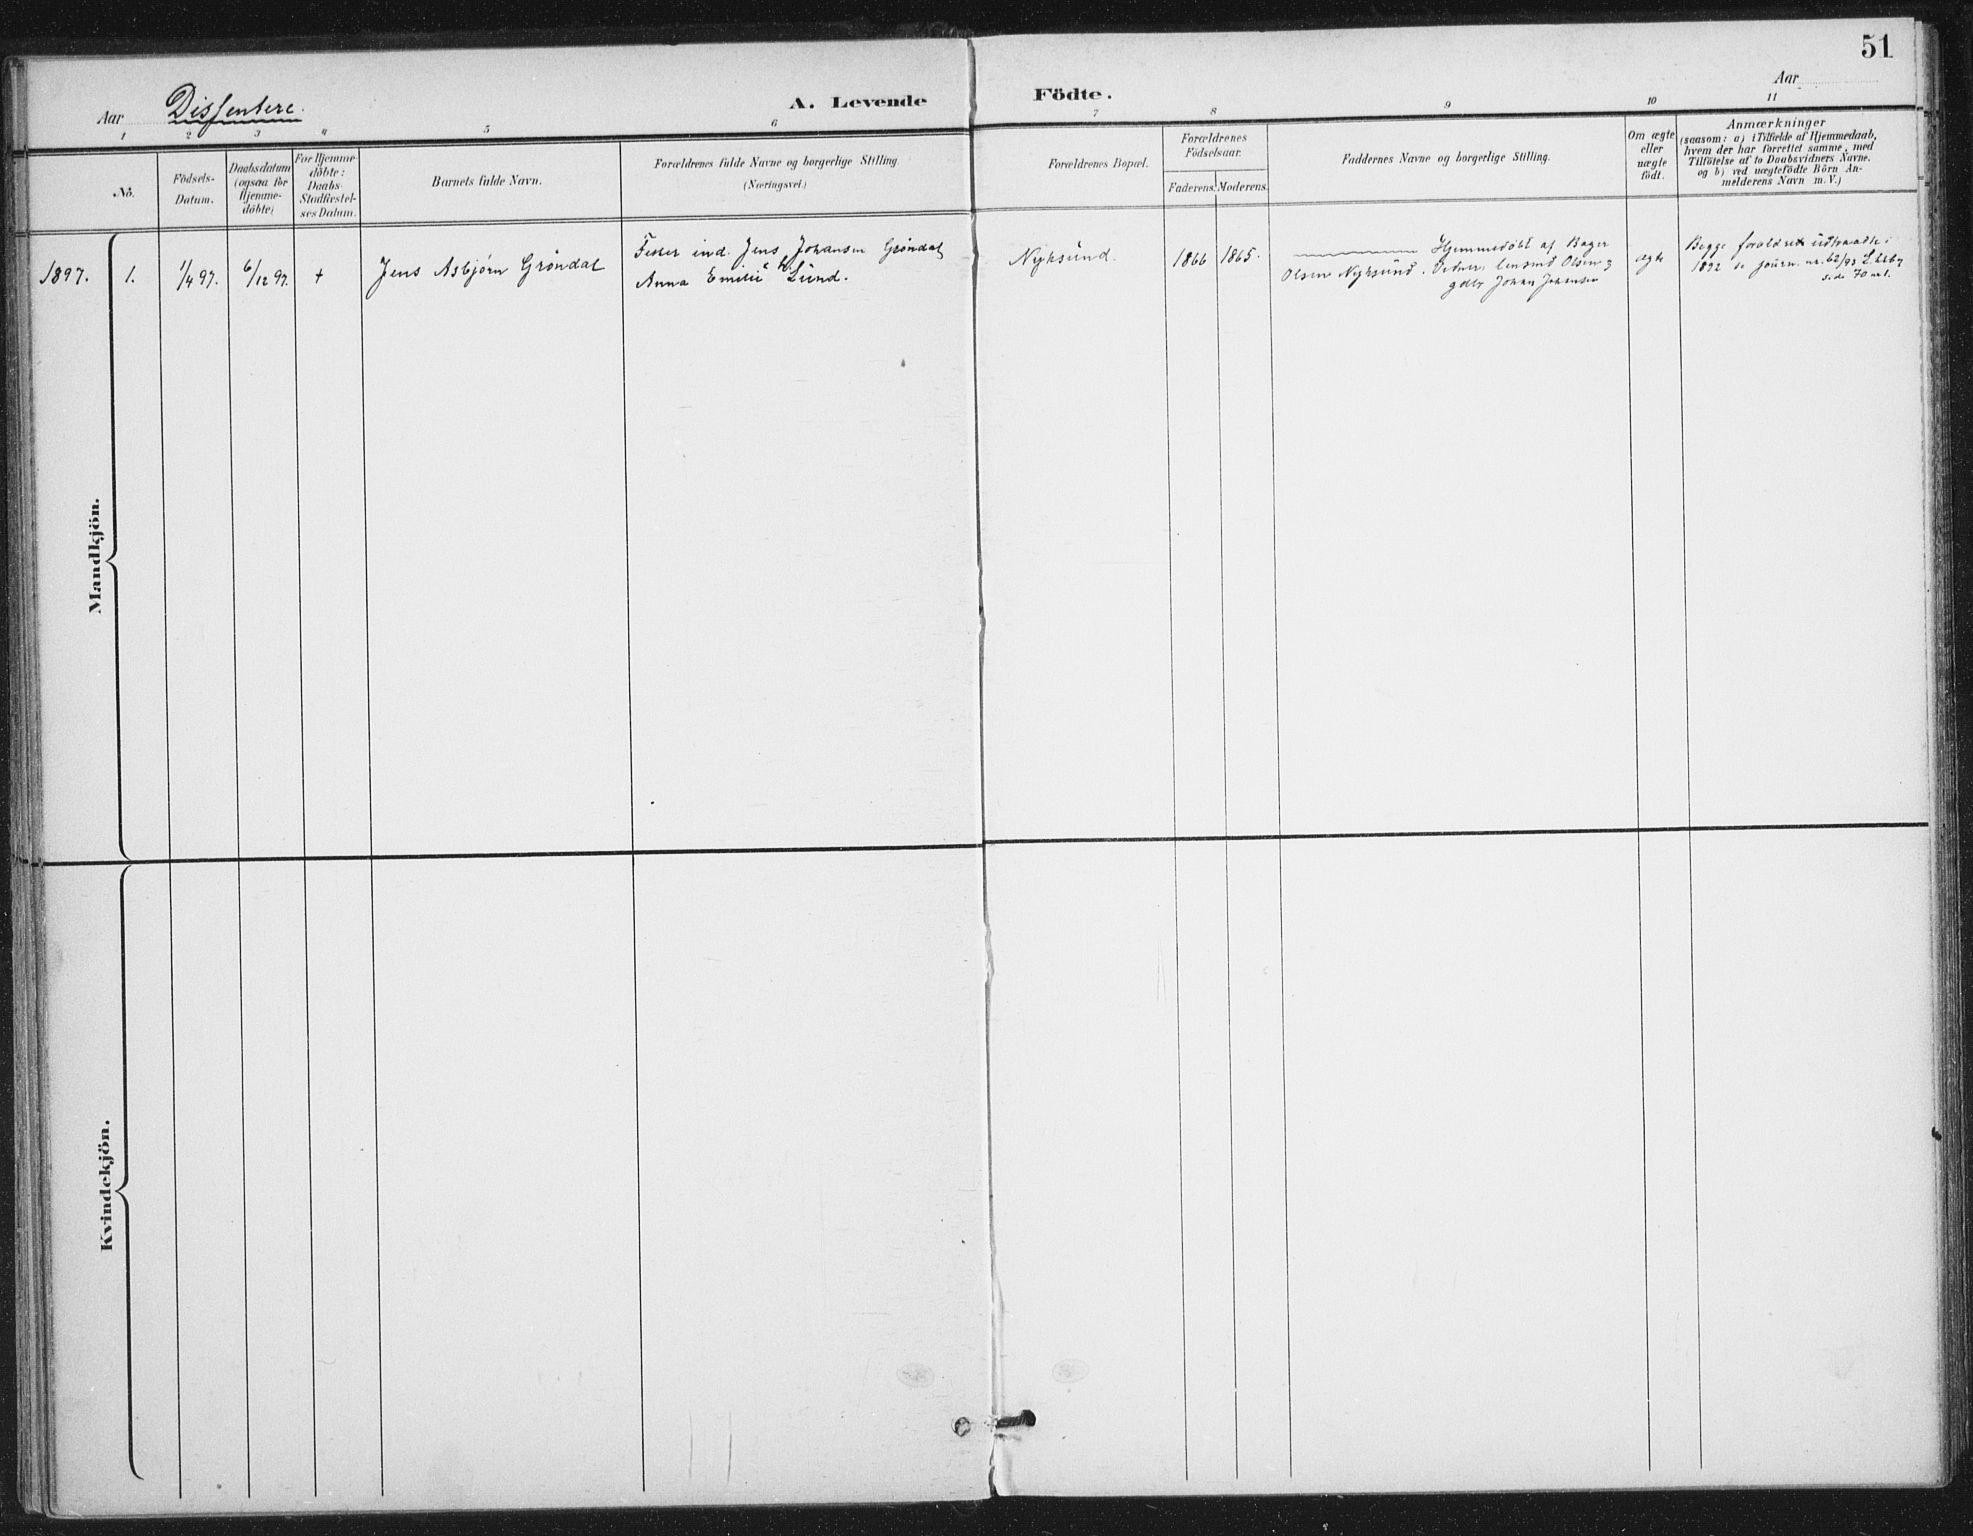 51
Aar Dissentere. A. Levende Födte. Aar
1 2 3 4 5 6 7 8 9 10 11
No.
Födsels-
Datum.
Daabsdatum
(ogsaa for
Hjemme-
döbte)
For Hjemme-
döbte:
Daabs-
Stadfæstel-
ses Datum.
Barnets fulde Navn.
Forældrenes fulde Navne og borgerlige Stilling
(Næringsvei.)
Forældrenes Bopæl.
Forældrenes
Födselsaar.
Faderens. Moderens.
Faddernes Navne og borgerlige Stilling.
Om ægte
eller
uægte
födt.
Anmærkninger
(saasom: a) i Tilfælde af Hjemmedaab,
hvem der har forrettet samme, med
Tilföielse af to Daabsvidners Navne.
og b) ved uægtefödte Börn An-
melderens Navn m. V.)
Mandkjön.
1897. 1. 1/4 97. 6/12 97. + Jens Asbjørn Gröndal
Fisker ind. Jens Johansen Gröndal
Anna Emilie Lund.
Nyksund. 1866 1865.
Hjemmedöbt af Bager
Olsen Nyksund. Vidner: Olsen og
gdbr Johan Johansen
ægte
Begge foraldre udtraadte i
1892 se journ. nr. 62/93
side 70
Kvindekjön.